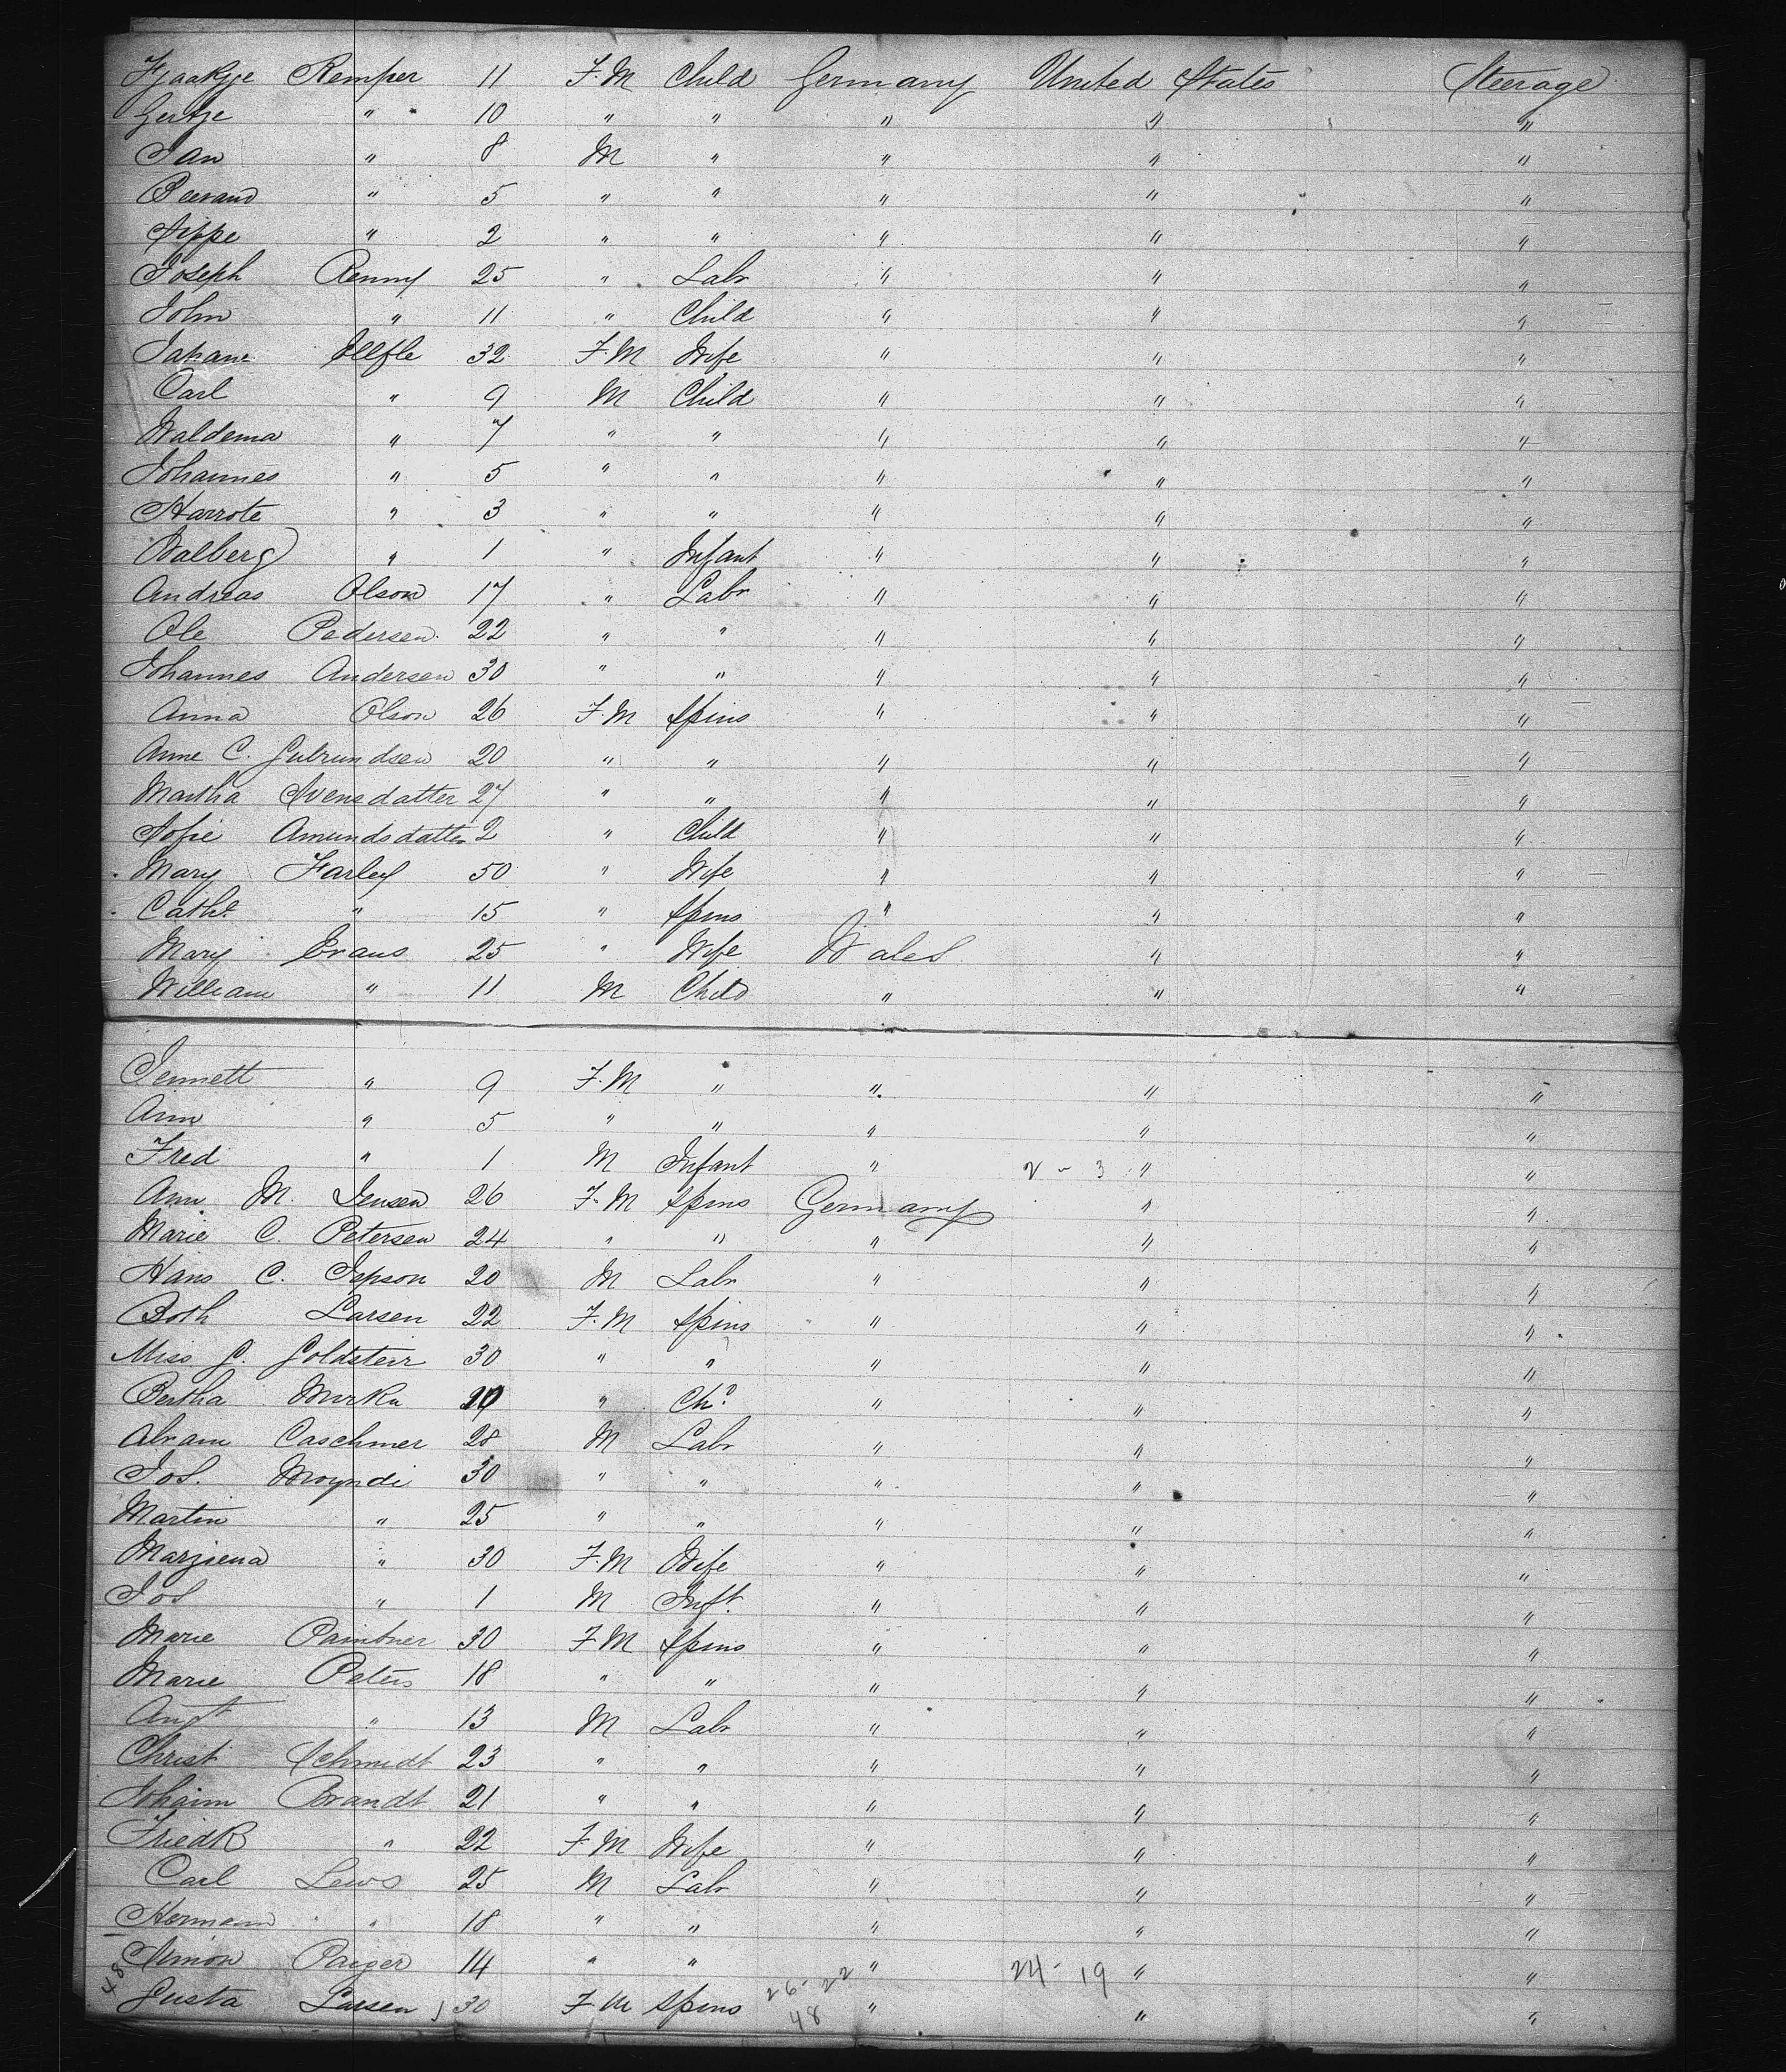 Fjaakje Remper 11 F.M Child Germany United States Steerage
Gertje " 10 " " " " "
Jan " 8 M " " " "
Beerand " 5 " " " " "
Sippe " 2 " " " " "
Joseph Renny 25 " Labr " " "
John " 11 " Child " " "
Jahane Ellfle 32 F.M Wife " " "
Carl " 9 M Child " " "
Waldema " 7 " " " " "
Johannes " 5 " " " " "
Harrote " 3 " " " " "
Walberg " 1 " Infant " " "
Andreas Olson 17 " Labr " " "
Ole Pedersen 22 " " " " "
Johannes Andersen 30 " " " " "
Anna Olson 26 F.M Spins " " "
Anne C. Gulrundsen 20 " " " " "
Martha Svensdatter 27 " " " " "
Sofie Amundsdatter 2 " Child " " "
Mary Farley 50 " Wife " " "
Cathe " 15 " Spins " " "
Mary Evans 25 " Wife Wales " "
William " 11 M Child " " "
Jennett " 9 F.M " " " "
Ann " 5 " " " " "
Fred " 1 M Infant " 2 - 3 " "
Ann M. Jensen 26 F.M Spins Germany " "
Marie C. Petersen 24 " " " " "
Hans C. Jepson 20 M Labr " " "
Both Larsen 22 F.M Spins " " "
Miss G. Goldsteir 30 " " " " "
Bertha Mirka " Chd " " "
Abram Caschmer 28 M Labr " " "
Jos. Moyndi 30 " " " " "
Martin " 25 " " " " "
Marziena " 30 F.M Wife " " "
Jos " 1 M Inft. " " "
Marie Paintner 30 F.M Spins " " "
Marie Peters 18 " " " " "
Augt " 13 M Labr " " "
Christ Schmidt 23 " " " " "
Johann Brandt 21 " " " " "
FriedR " 22 F.M Wife " " "
Carl Lews 25 M Labr " " "
Hermann " 18 " " " " "
48 Simon Paiger 14 " " 26-22 " 24-19 " "
Gusta Larsen 30 F.M Spins 48 " " "